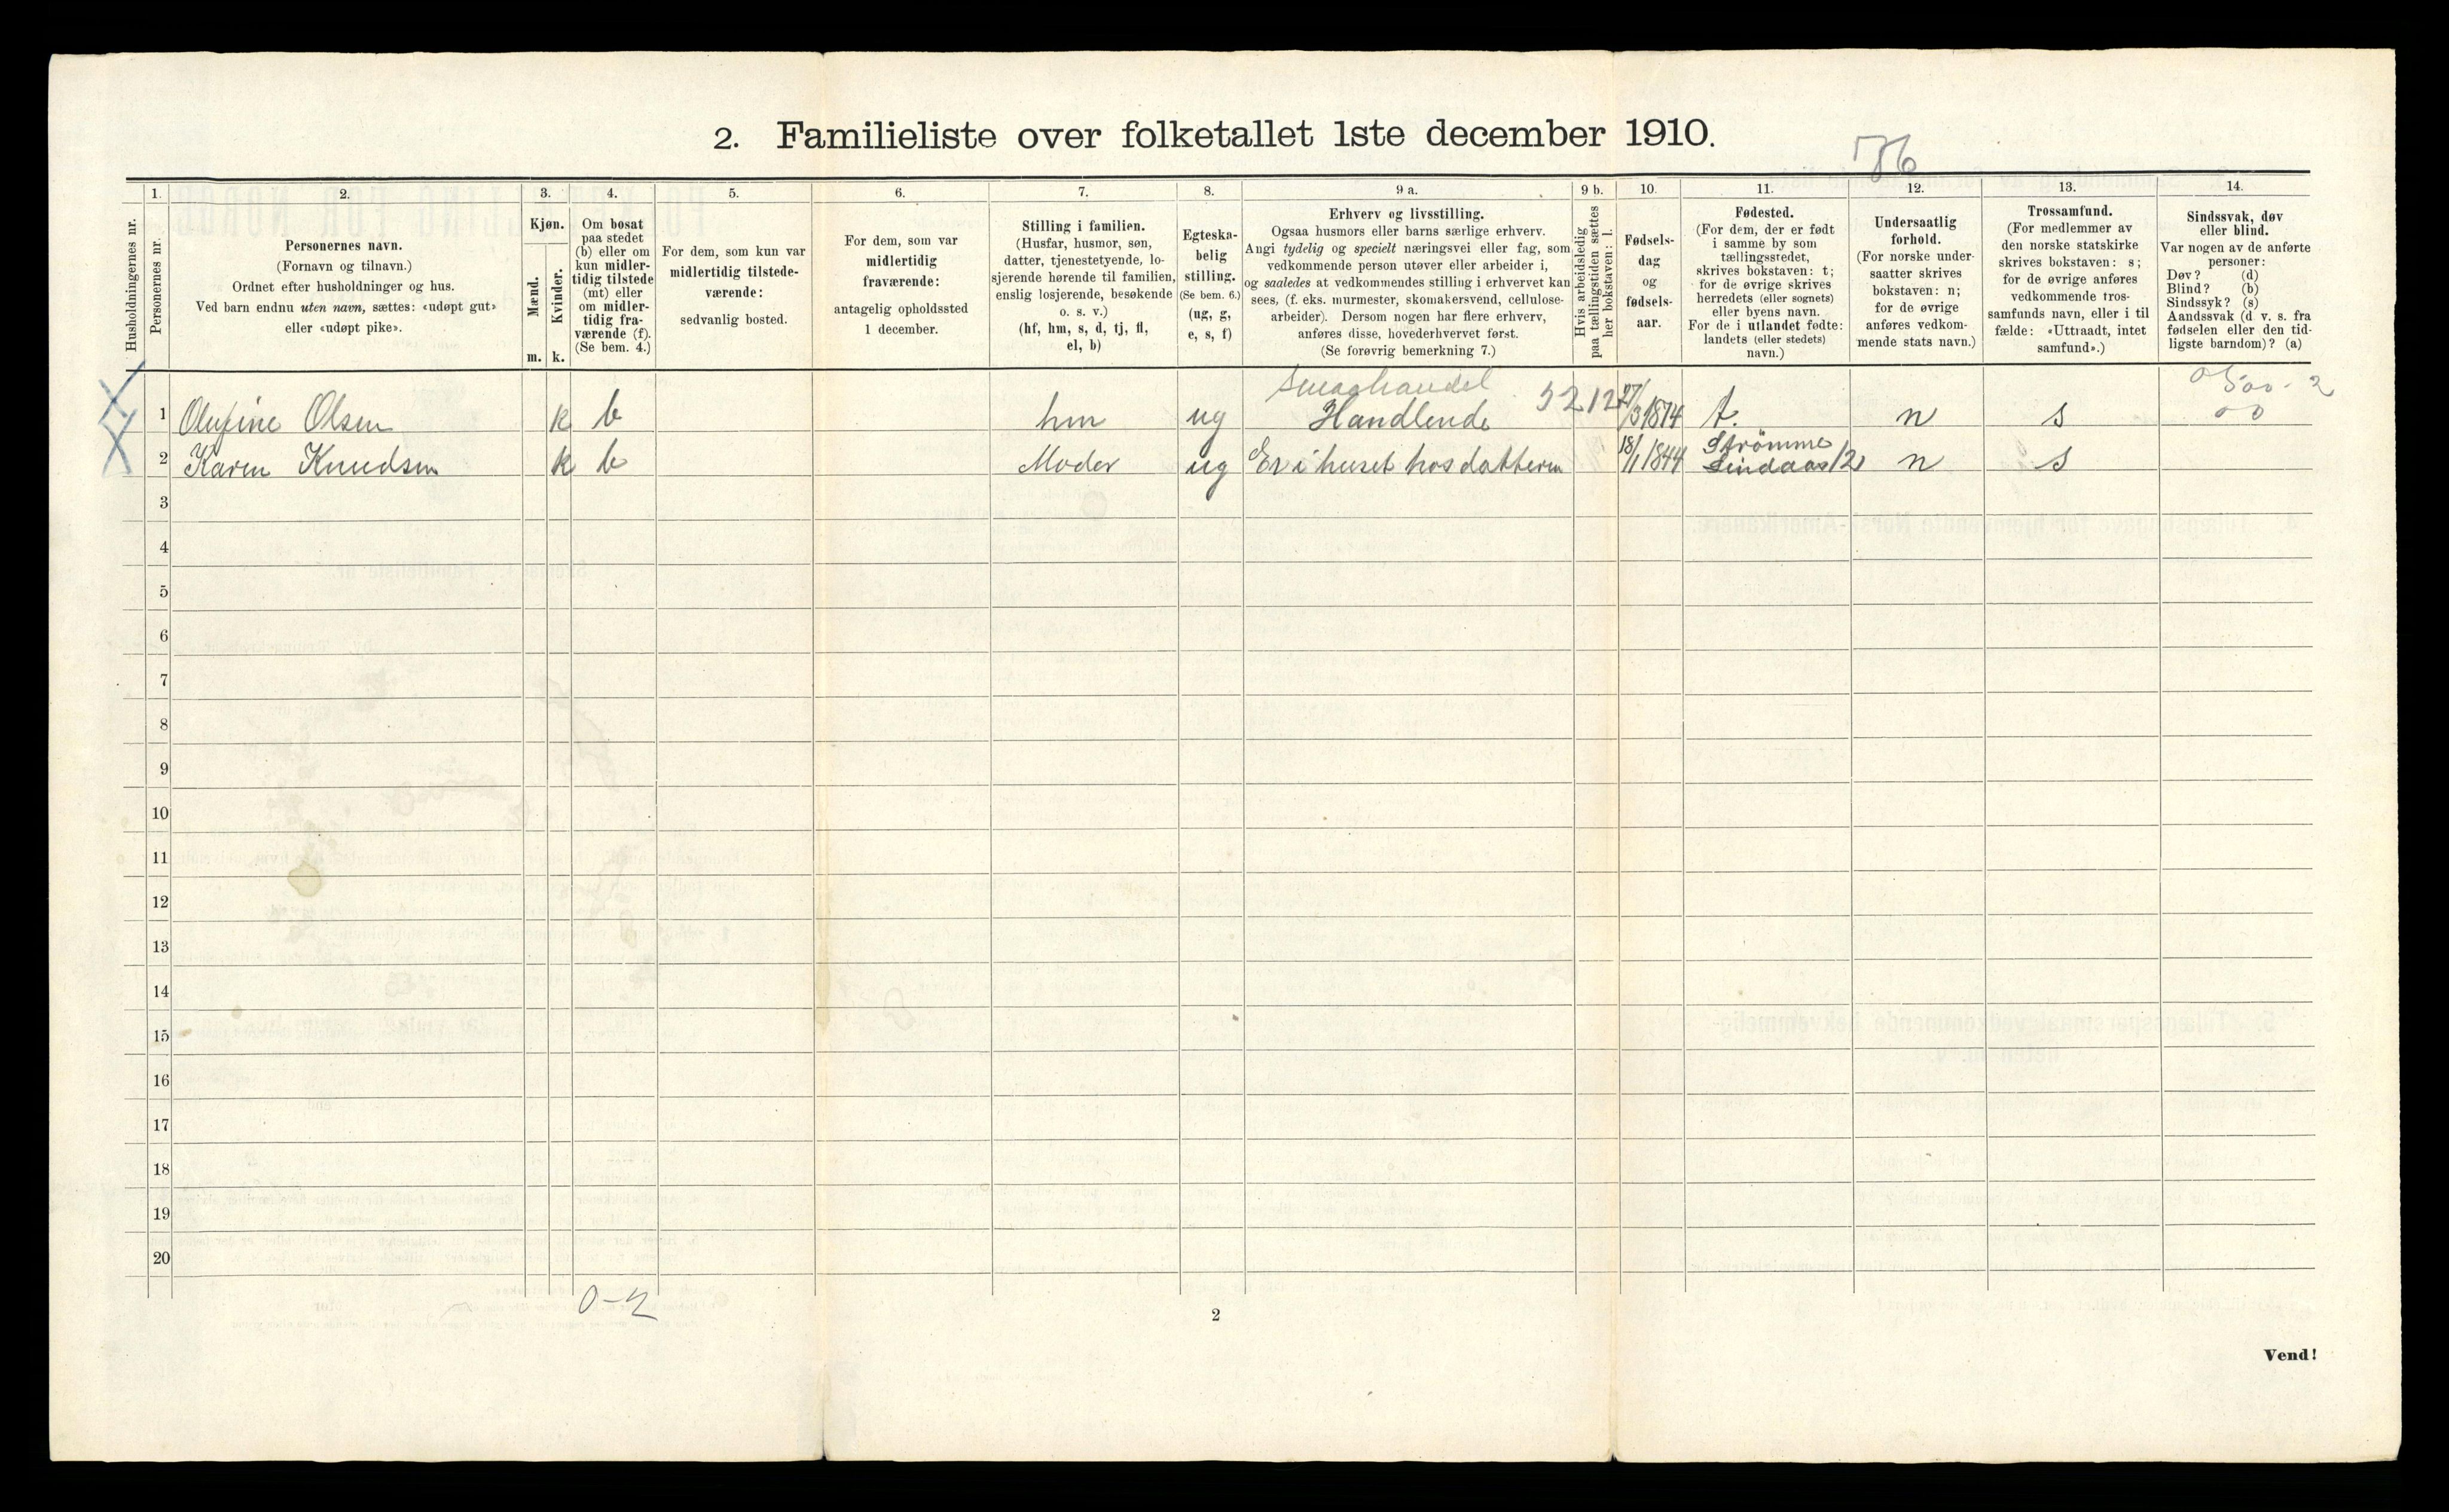 2. Familieliste over folketallet 1ste december 1910.
Husholdningernes nr.
1.
Personernes nr.
2.
Personernes navn.
(Fornavn og tilnavn.)
Ordnet efter husholdninger og hus.
Ved barn endnu uten navn, sættes: «udøpt gut»
eller «udøpt pike».
3.
Kjøn.
Mænd.
Kvinder.
m. k.
4.
Om bosat
paa stedet
(b) eller om
kun midler-
tidig tilstede
(mt) eller
om midler-
tidig fra-
værende (f).
(Se bem. 4.)
5.
For dem, som kun var
midlertidig tilstede-
værende:
sedvanlig bosted.
6.
For dem, som var
midlertidig
fraværende:
antagelig opholdssted
1 december.
7.
Stilling i familien.
(Husfar, husmor, søn,
datter, tjenestetyende, lo-
sjerende hørende til familien,
enslig losjerende, besøkende
o. s. v.)
(hf, hm, s, d, tj, fl,
el, b)
8.
Egteska-
belig
stilling.
(Se bem. 6.)
(ug, g,
e, s, f)
9 a.
Erhverv og livsstilling.
Ogsaa husmors eller barns særlige erhverv.
Angi tydelig og specielt næringsvei eller fag, som
vedkommende person utøver eller arbeider i,
og saaledes at vedkommendes stilling i erhvervet kan
sees, (f. eks. murmester, skomakersvend, cellulose-
arbeider). Dersom nogen har flere erhverv,
anføres disse, hovederhvervet først.
(Se forøvrig bemerkning 7.)
9 b.
Hvis arbeidsledig
paa tællingstiden sættes
her bokstaven: l.
10.
Fødsels-
dag
og
fødsels-
aar.
11.
Fødested.
(For dem, der er født
i samme by som
tællingsstedet,
skrives bokstaven: t;
for de øvrige skrives
herredets (eller sognets)
eller byens navn.
For de i utlandet fødte:
landets (eller stedets)
navn.)
12.
Undersaatlig
forhold.
(For norske under-
saatter skrives
bokstaven: n;
for de øvrige
anføres vedkom-
mende stats navn.)
13.
Trossamfund.
(For medlemmer av
den norske statskirke
skrives bokstaven: s;
for de øvrige anføres
vedkommende tros-
samfunds navn, eller i til
fælde: «Uttraadt, intet
samfund».)
14.
Sindssvak, døv
eller blind.
Var nogen av de anførte
personer:
Døv? (d)
Blind? (b)
Sindssyk? (s)
Aandssvak (d v. s. fra
fødselen eller den tid-
ligste barndom)? (a)
Smaahandel
1 Olufine Olsen k b hm ug Handlende 27/3 1874 t. n s
Strømme
2 Karen Knudsen k b Moder ug Er i huset hos datteren 18/1 1844 Lindaas n s
3
4
5
6
7
8
9
10
11
12
13
14
15
16
17
18
19
20
0-2
2
Vend!